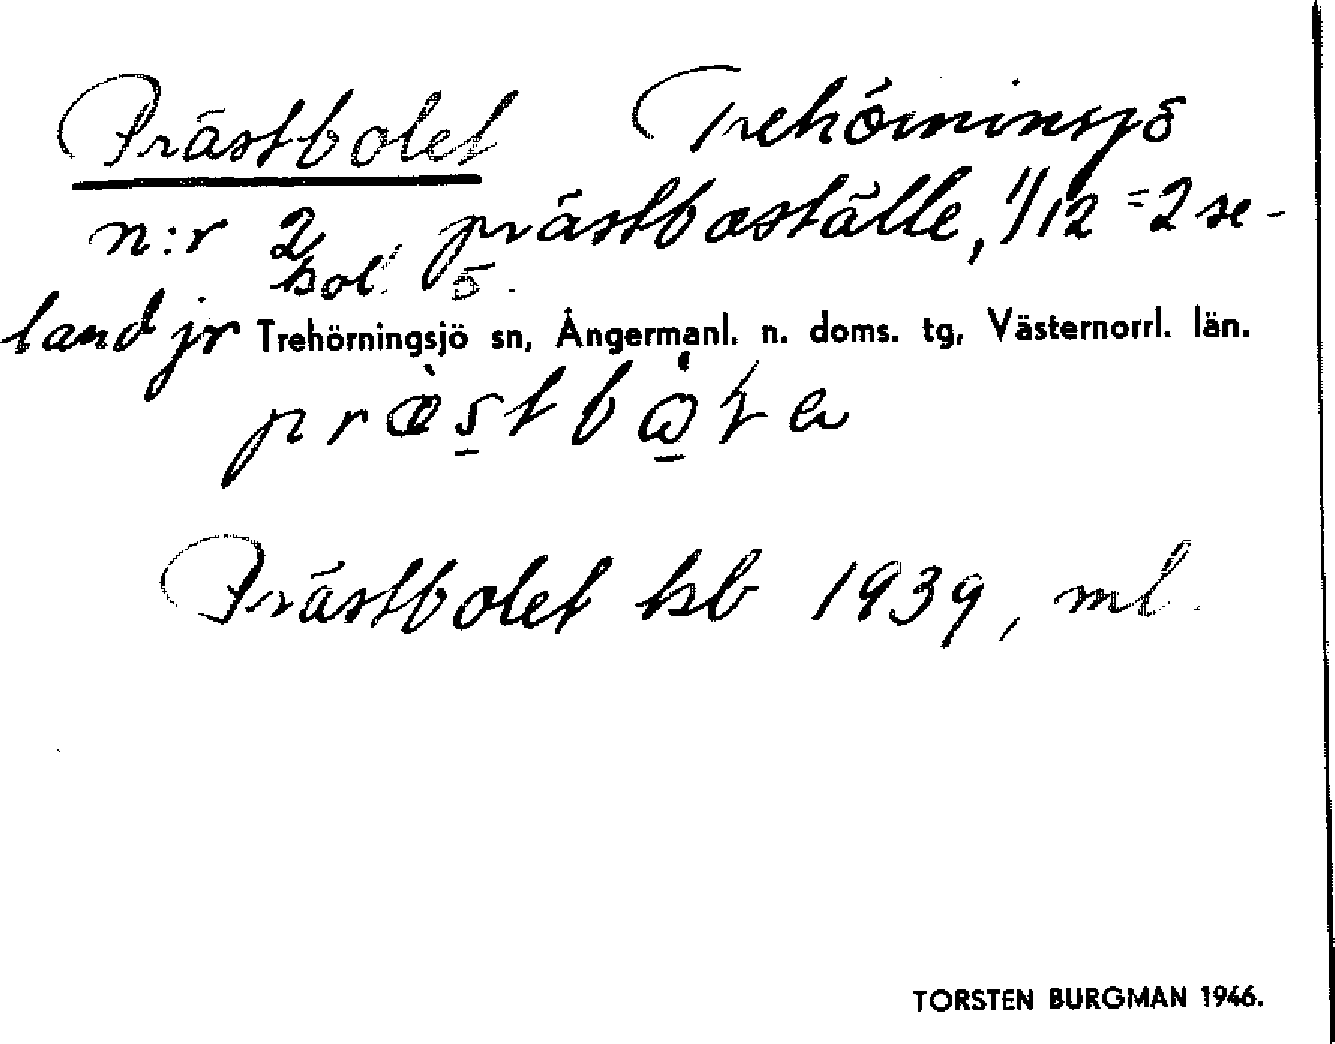 Prästbolet Trehörningsjö
n:r 2 prästboställe, 1/12 = 2 se-
bol. 5.
land jr Trehörningsjö sn, Ångermanl. n. doms. tg, Västernorrl. län.
Prästbolet kb 1939, ml.
TORSTEN BURGMAN 1946.